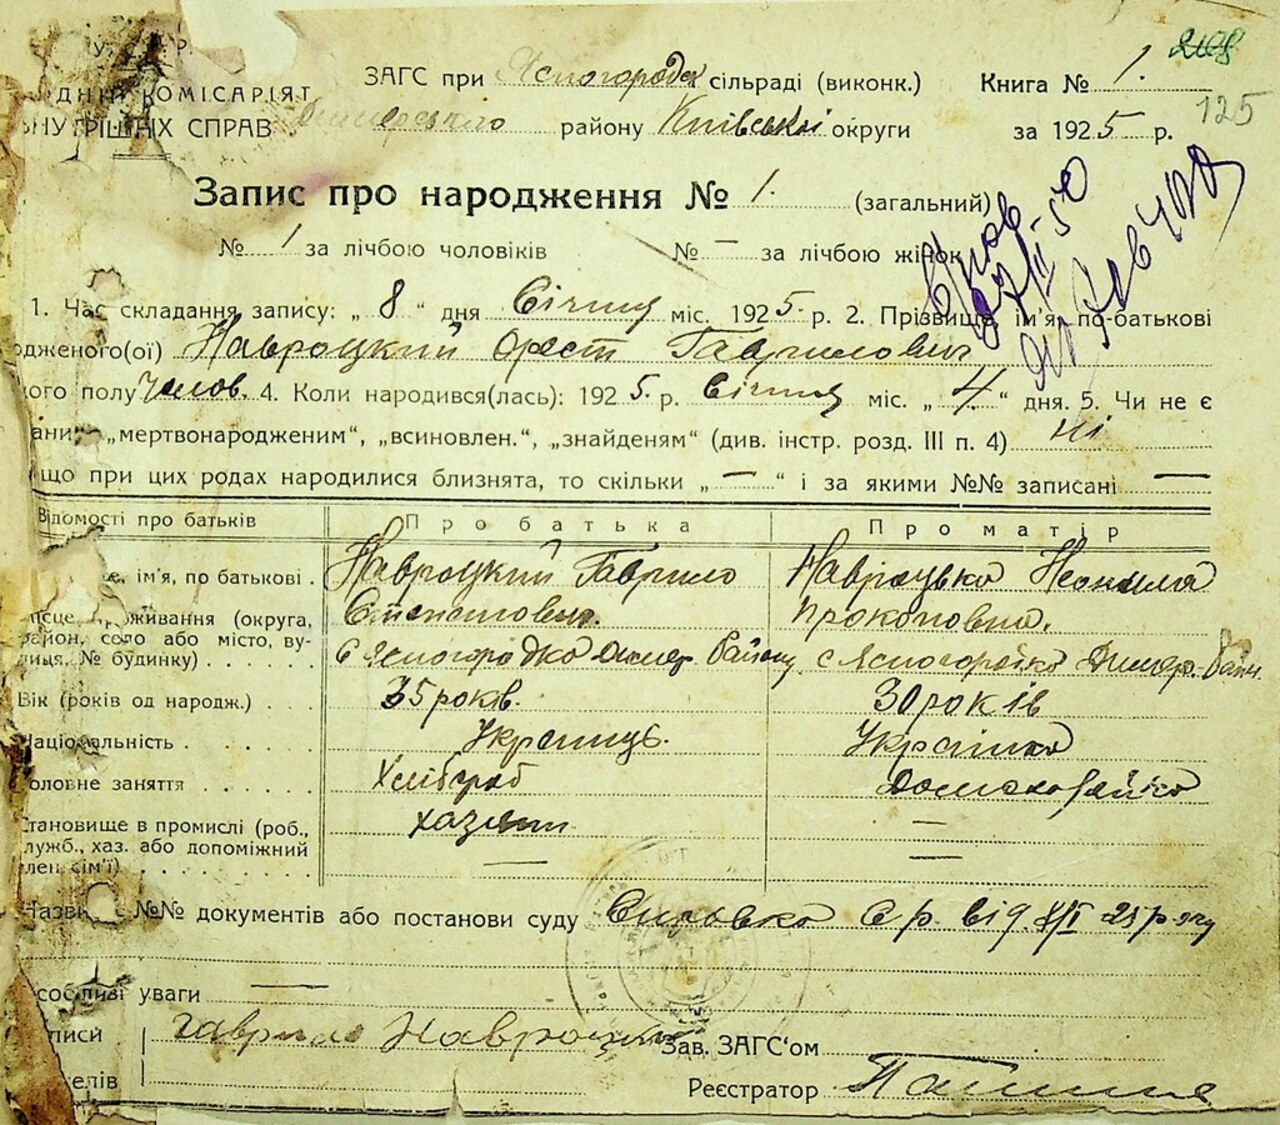 У.С.Р.Р.
КОМІСАРІЯТ
ВНУТРІШНІХ СПРАВ
208
125
ЗАГС при Ясногородк сільраді (виконк.) Книга № 1.
району Київської округи за 1925 р.
Запис про народження № 1. (загальний)
№ 1 за лічбою чоловіків № — за лічбою жінок
1. Час складання запису: „ 8 “ дня Січня міс. 1925. р. 2. Прізвище ім'я, по-батькові
одженого(ої) Навроцкий Орест Гаврилович
ого полу Чолов. 4. Коли народився(лась): 1925. р. Січня міс. „ 4. “ дня. 5. Чи не є
„мертвонародженим“, „всиновлен.“, „знайденям“ (див. інстр. розд. III п. 4) ні
що при цих родах народилися близнята, то скільки „ — “ і за якими №№ записані —
Відомості про батьків Про батька Про матір
ім'я, по батькові . Навроцкий Гаврило Навроцька
Степанович. Прокоповна.
місце проживання (округа,
район, село або місто, ву-
лиця, № будинку) . . . . . . с Ясногородка Димер. Району с Ясногородка Димер. Район.
Вік (років од народж.) . . . 35 років. 30 років
Національність . . . . . . . Українець. Українка
оловне заняття . . . . . . Хлібороб Домохазяйка
тановище в промислі (роб., хазяїн —
служб., хаз. або допоміжний
член сім'ї) . . . . . . . . — —
Назви №№ документів або постанови суду С р. від
собливі уваги —
писи Гаврило Навроцкий Зав. ЗАГС'ом
елів Реєстратор